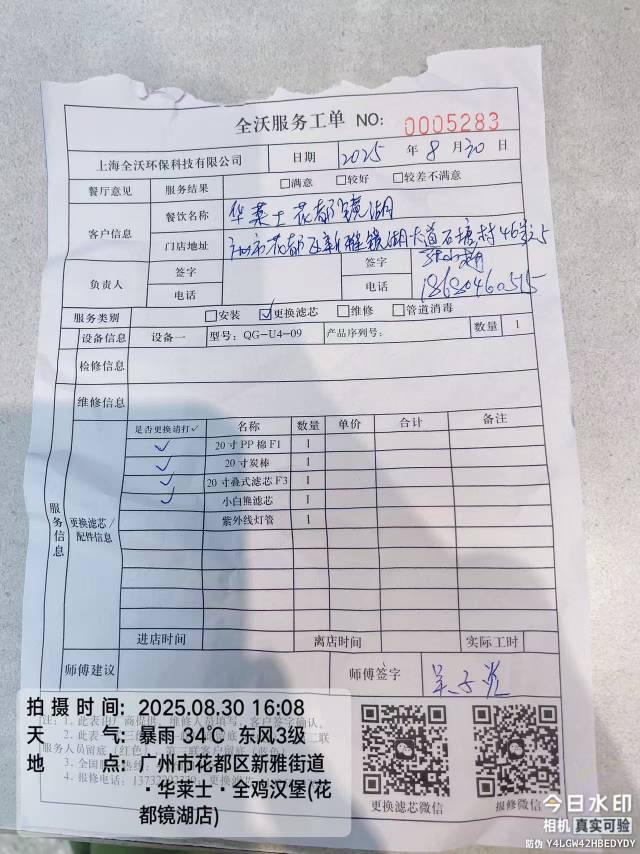 全沃服务工单 NO: 0005283
上海全沃环保科技有限公司 日期 2025 年 8 月 30 日
餐厅意见 服务结果 □满意 □较好 □较差不满意
客户信息 餐饮名称 华莱士花都镜湖
门店地址 广州市花都区新雅镜湖大道石塘村46号之5
负责人 签字 签字
电话 电话 18680460515
服务类别 □安装 ☑更换滤芯 □维修 □管道消毒
设备信息 设备一 型号: QG-U4-09 产品序列号: 数量 1
检修信息
维修信息
服务信息
更换滤芯/配件信息
是否更换请打✓ 名称 数量 单价 合计 备注
✓ 20寸PP棉F1 1
✓ 20寸炭棒 1
✓ 20寸叠式滤芯F3 1
✓ 小白熊滤芯 1
紫外线灯管 1
进店时间 离店时间 实际工时
师傅建议 师傅签字
更换滤芯微信 报修微信
拍摄时间: 2025.08.30 16:08
天气: 暴雨 34℃ 东风3级
地点: 广州市花都区新雅街道
·华莱士·全鸡汉堡(花
都镜湖店)
今日水印
相机 真实可验
防伪 Y4LGW42HBEDYDY